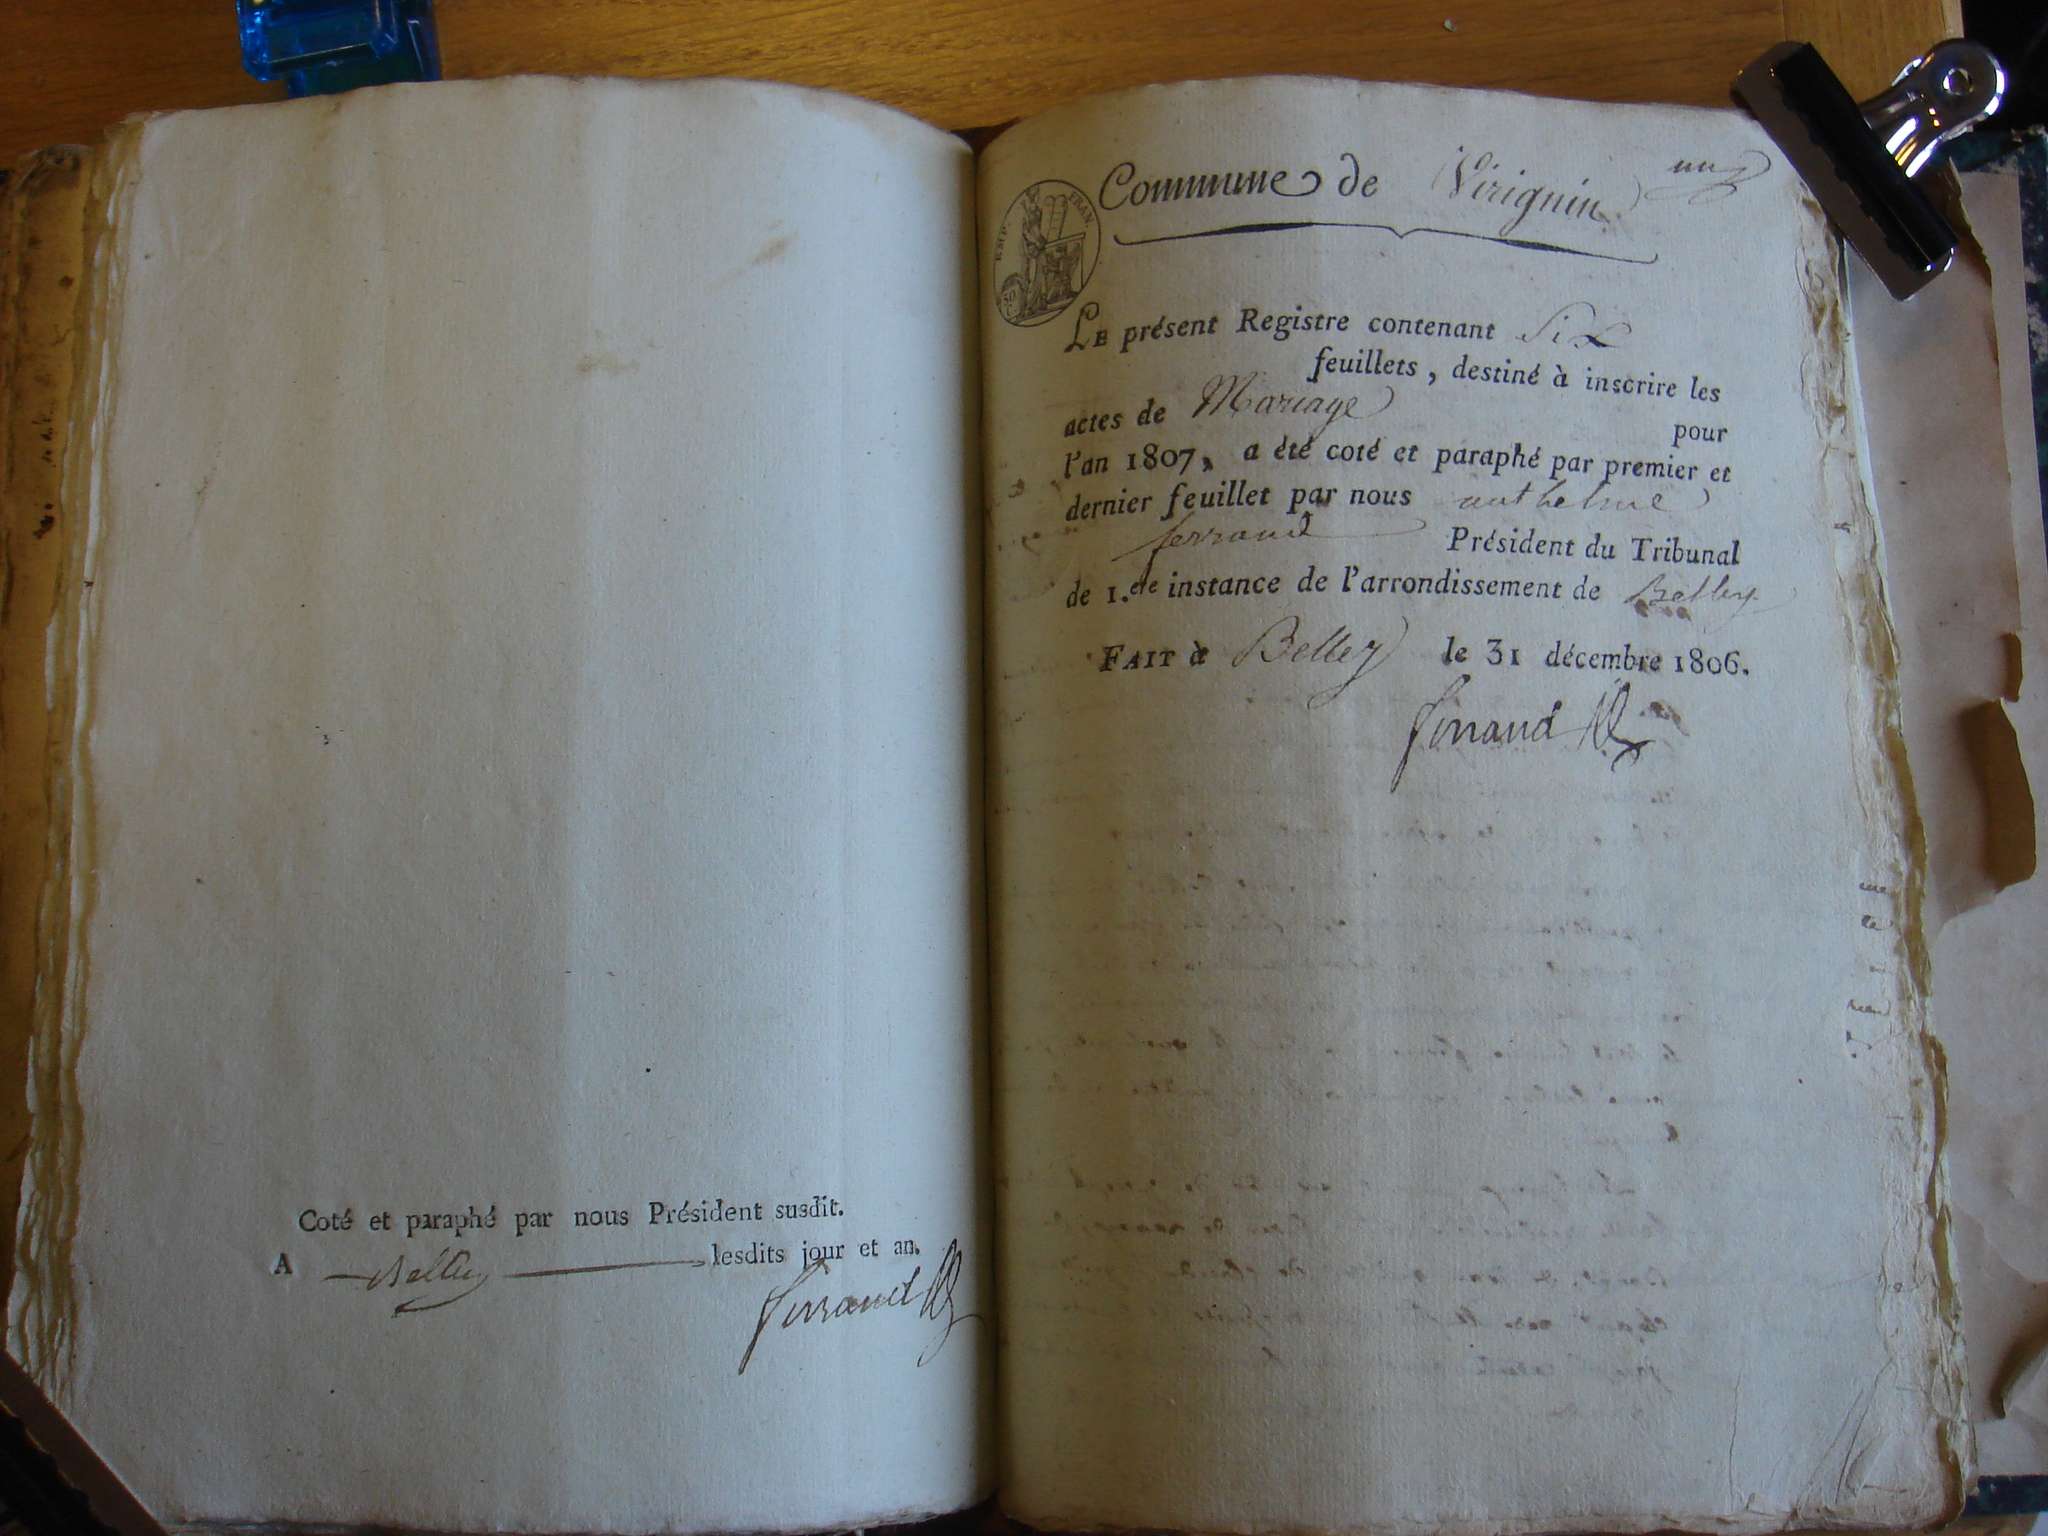 Coté et paraphé par nous Président susdit.
A Belley lesdits jour et an.
ferrand
Commune de Virignin
un
EMP. FRAN.
50
LE présent Registre contenant Six
feuillets, destiné à inscrire les
actes de Mariage pour
l'an 1807, a été coté et paraphé par premier et
dernier feuillet par nous anthelme
ferrand Président du Tribunal
de 1.ere instance de l'arrondissement de Belley
FAIT à Belley le 31 décembre 1806.
ferrand